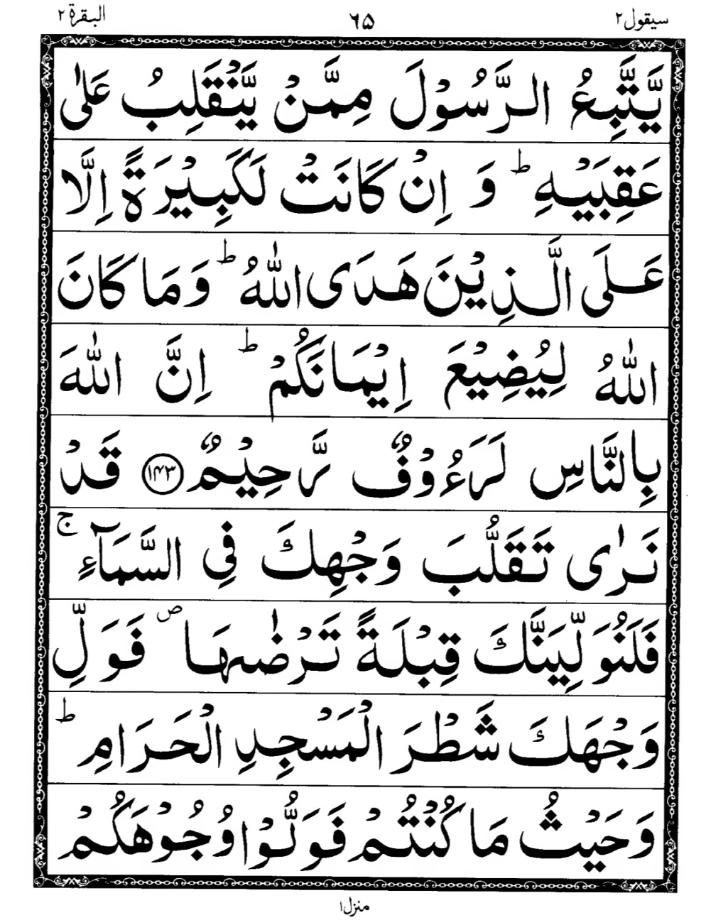 سيقول٢ ٦٥ البقرة٢
يَّتَّبِعُ الرَّسُوْلَ مِمَّنْ يَّنْقَلِبُ عَلٰى
عَقِبَيْهِ ؕ وَ اِنْ كَانَتْ لَكَبِيْرَةً اِلَّا
عَلَى الَّذِيْنَ هَدَى اللّٰهُ ؕ وَمَا كَانَ
اللّٰهُ لِيُضِيْعَ اِيْمَانَكُمْ ؕ اِنَّ اللّٰهَ
بِالنَّاسِ لَرَءُوْفٌ رَّحِيْمٌ ﴿۱۴۳﴾ قَدْ
نَرٰى تَقَلُّبَ وَجْهِكَ فِي السَّمَآءِ ۚ
فَلَنُوَلِّيَنَّكَ قِبْلَةً تَرْضٰىهَا ۪ فَوَلِّ
وَجْهَكَ شَطْرَ الْمَسْجِدِ الْحَرَامِ ؕ
وَحَيْثُ مَا كُنْتُمْ فَوَلُّوْا وُجُوْهَكُمْ
منزل١